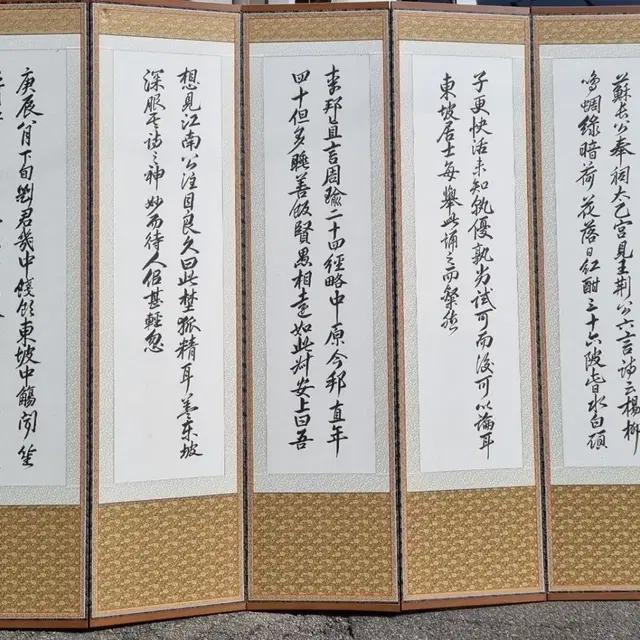 蘇長公奉祠太乙宮見王荊公六言詩云楊柳
鳴蜩綠暗荷花落日紅酣三十六陂皆水白頭
子更快活未知孰優孰劣試可而後可以論耳
東坡居士每舉此誦之而粲然
李邦直言周瑜二十四經略中原今邦直年
四十但多睡善飯賢愚相遠如此叔安上曰吾
想見江南公注目良久曰此野狐精耳蓋东坡
深服其詩之神妙而待人侣甚輕忽
庚辰八月下旬劉君幾中餞飲東坡中觴聞笙